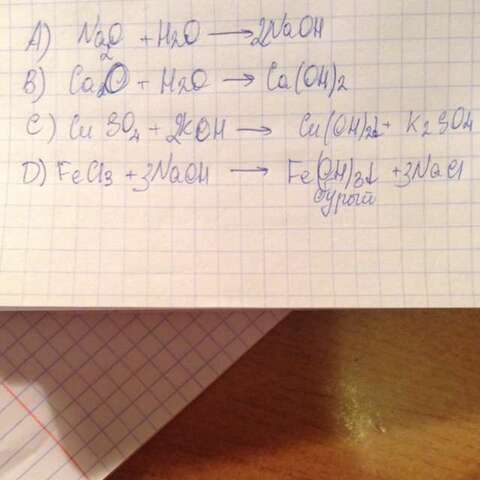 A) Na₂O + H₂O → 2NaOH
B) CaO + H₂O → Ca(OH)₂
C) CuSO₄ + 2KOH → Cu(OH)₂↓ + K₂SO₄
D) FeCl₃ + 3NaOH → Fe(OH)₃↓ + 3NaCl
бурый